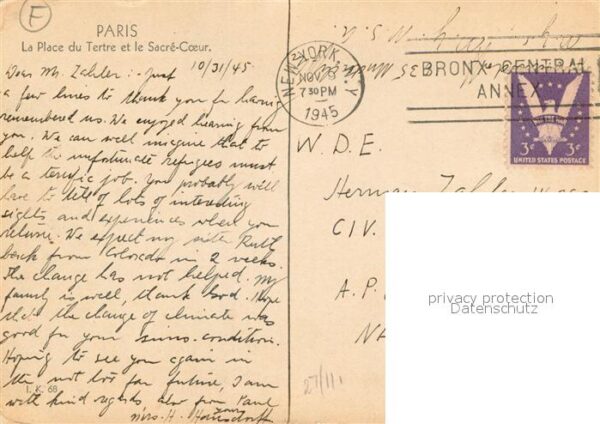 F
PARIS
La Place du Tertre et le Sacré-Cœur.
10/31/45
Dear Mr. Zahler: - Just
a few lines to thank you for having
remembered us. We enjoyed hearing from
you. We can well imagine that to
help the unfortunate refugees must
be a terrific job. You probably will
have to tell of lots of interesting
sights and experiences when you
return. We expect my sister Ruth
back from Colorado in 2 weeks.
The change has not helped. My
family is well, thank God. I hope
that the change of climate was
good for your sinus-condition.
Hoping to see you again in
the not too far future, I am
with kind regards also from Paul
your
Mrs. H.
I. K. 68
NEW YORK
2
NOV 3
7 30 PM
1945
N.Y.
BRONX CENTRAL
ANNEX
3¢ 3¢
UNITED STATES POSTAGE
W.D.E.
Herman Zahler
CIV.
A.P.
27/11
privacy protection
Datenschutz